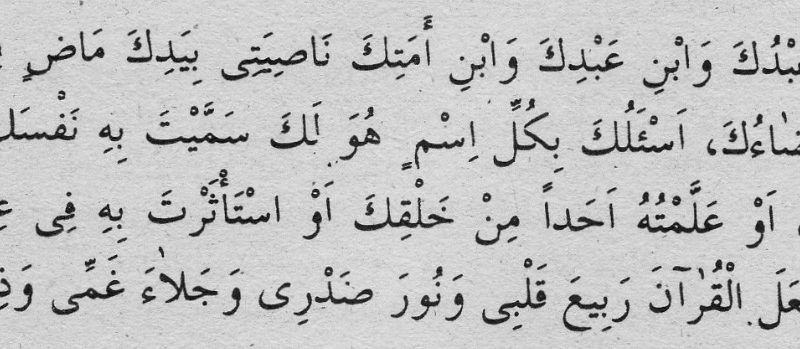 بْدُكَ وَابْنِ عَبْدِكَ وَابْنِ أَمَتِكَ نَاصِيَتِى بِيَدِكَ مَاضٍ
ضَاءُكَ، اَسْئَلُكَ بِكُلِّ اِسْمٍ هُوَ لَكَ سَمَّيْتَ بِهِ نَفْسَك
اَوْ عَلَّمْتُهُ اَحَداً مِنْ خَلْقِكَ اَوْ اسْتَأْثَرْتَ بِهِ فِى عِ
عَلَ الْقُرْآنَ رَبِيعَ قَلْبِى وَنُورَ صَدْرِى وَجَلاٰءَ غَمِّى وَذ